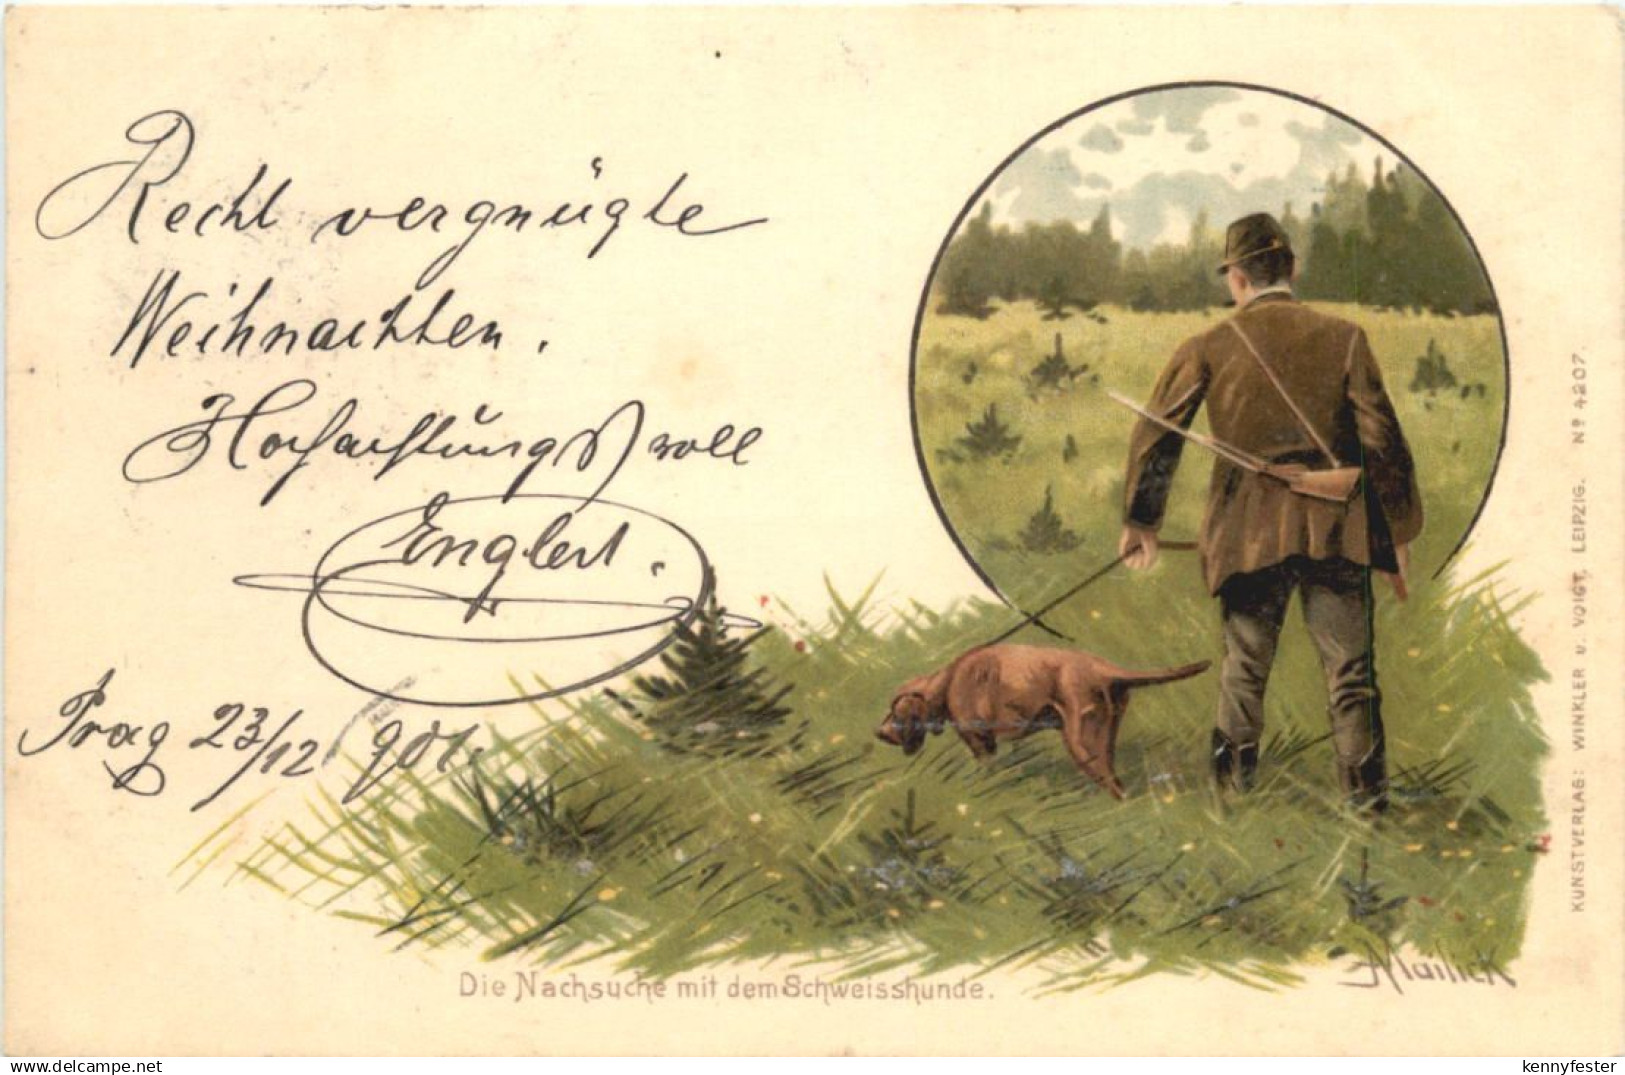 Recht vergnügte
Weihnachten.
Hochachtungsvoll
Englert.
Prag 23/12 901.
Die Nachsuche mit dem Schweisshunde.
AMailick
KUNSTVERLAG: WINKLER u. VOIGT, LEIPZIG. No 4207.
www.delcampe.net
kennyfester